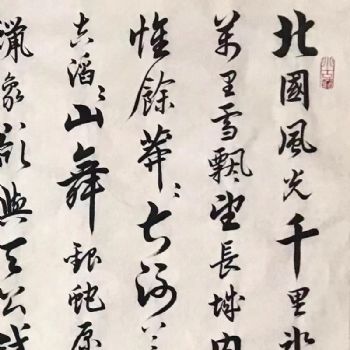 北國風光千里冰
萬里雪飄望長城內
惟餘莽〻大河上
失滔〻山舞銀蛇原
蠟象欲與天公試